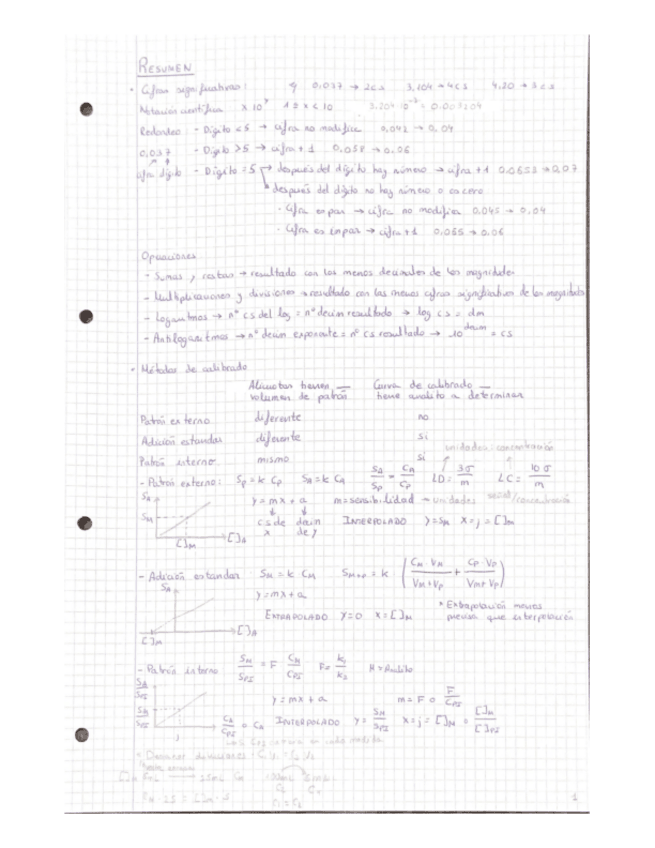 RESUMEN
• Cifras significativas: 0,037 → 2cs 3,204 → 4cs 4,20 → 3cs
Notación científica x 10^y 1 ≤ x < 10 3,204·10^-3 = 0,003204
Redondeo - Dígito <5 → cifra no modifica 0,042 → 0,04
0,037 - Dígito >5 → cifra +1 0,058 → 0,06
cifra dígito - Dígito = 5 → después del dígito hay número → cifra +1 0,0653 → 0,07
después del dígito no hay número o es cero
· Cifra es par → cifra no modifica 0,045 → 0,04
· Cifra es impar → cifra +1 0,055 → 0,06
Operaciones
- Sumas y restas → resultado con los menos decimales de las magnitudes
- Multiplicaciones y divisiones → resultado con las menos cifras significativas de las magnitudes
- Logaritmos → nº cs del log = nº decim resultado → log cs = dm
- Antilogaritmos → nº decim exponente = nº cs resultado → 10^decim = cs
• Métodos de calibrado
Alícuotas tienen __ volumen de patrón Curva de calibrado __ tiene analito a determinar
Patrón externo diferente no
Adición estandar diferente si
Patrón interno mismo si
unidades: concentración
- Patrón externo: Sp = k Cp SA = k CA SA/Sp = CA/Cp LD = 3σ/m LC = 10σ/m
SA y = mx + a m = sensibilidad → unidades señal/concentración
SM cs de x decim de y INTERPOLADO y = SM x = j = [ ]M
[ ]M [ ]A
- Adición estandar SM = k CM SM+P = k (CM VM/VM+VP + CP VP/VM+VP)
SA y = mx + a
EXTRAPOLADO y = 0 x = [ ]M * Extrapolación menos precisa que interpolación
[ ]M [ ]A
- Patrón interno SM/SPI = F CM/CPI F = k1/k2 M = Analito
SA/SPI y = mx + a m = F o F/CPI
SM/SPI CA/CPI o CA INTERPOLADO y = SM/SPI x = j = [ ]M = [ ]M/[ ]PI
1